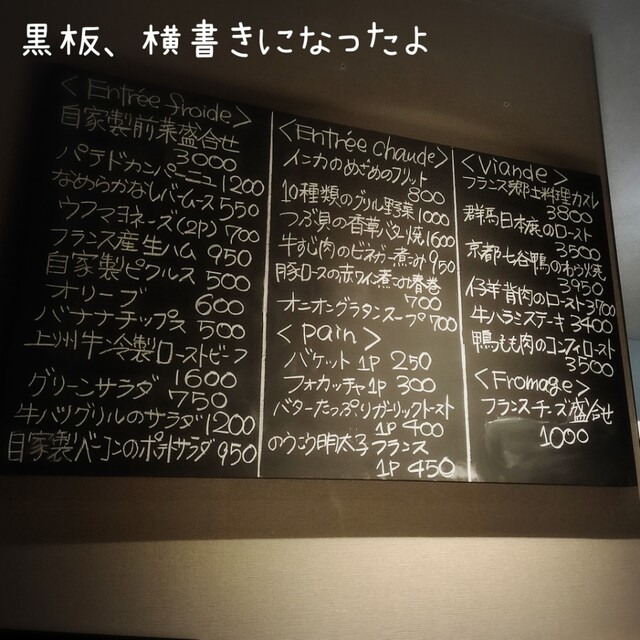 黒板、横書きになったよ
<Entrée froide>
自家製前菜盛合せ
3000
パテドカンパーニュ 1200
なめらかなレバームース 550
ウフマヨネーズ(2P) 700
フランス産生ハム 950
自家製ピクルス 500
オリーブ 600
バナナチップス 500
上州牛冷製ローストビーフ
1600
グリーンサラダ 750
牛バリグリルのサラダ 1200
自家製ベーコンのポテトサラダ 950
<Entrée chaude>
インカのめざめのフリット
800
10種類のグリル野菜 1000
つぶ貝の香草バター焼 1600
牛すじ肉のビネガー煮み 950
豚ロースの赤ワイン煮み春巻
700
オニオングラタンスープ 700
<pain>
バケット 1P 250
フォカッチャ 1P 300
バターたっぷりガーリックトースト
1P 400
のうこう明太子フランス
1P 450
<Viande>
フランス郷土料理カスレ
3800
群馬日本鹿のロースト
3500
京都七谷鴨のわら焼
3950
仔羊背肉のロースト 3700
牛ハラミステーキ 3400
鴨もも肉のコンフィロースト
3500
<Fromage>
フランスチーズ盛合せ
1000